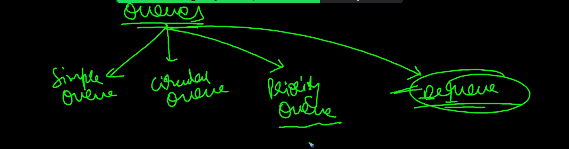 Queues
Simple
Queue
Circular
Queue
Priority
Queue
Dequeue